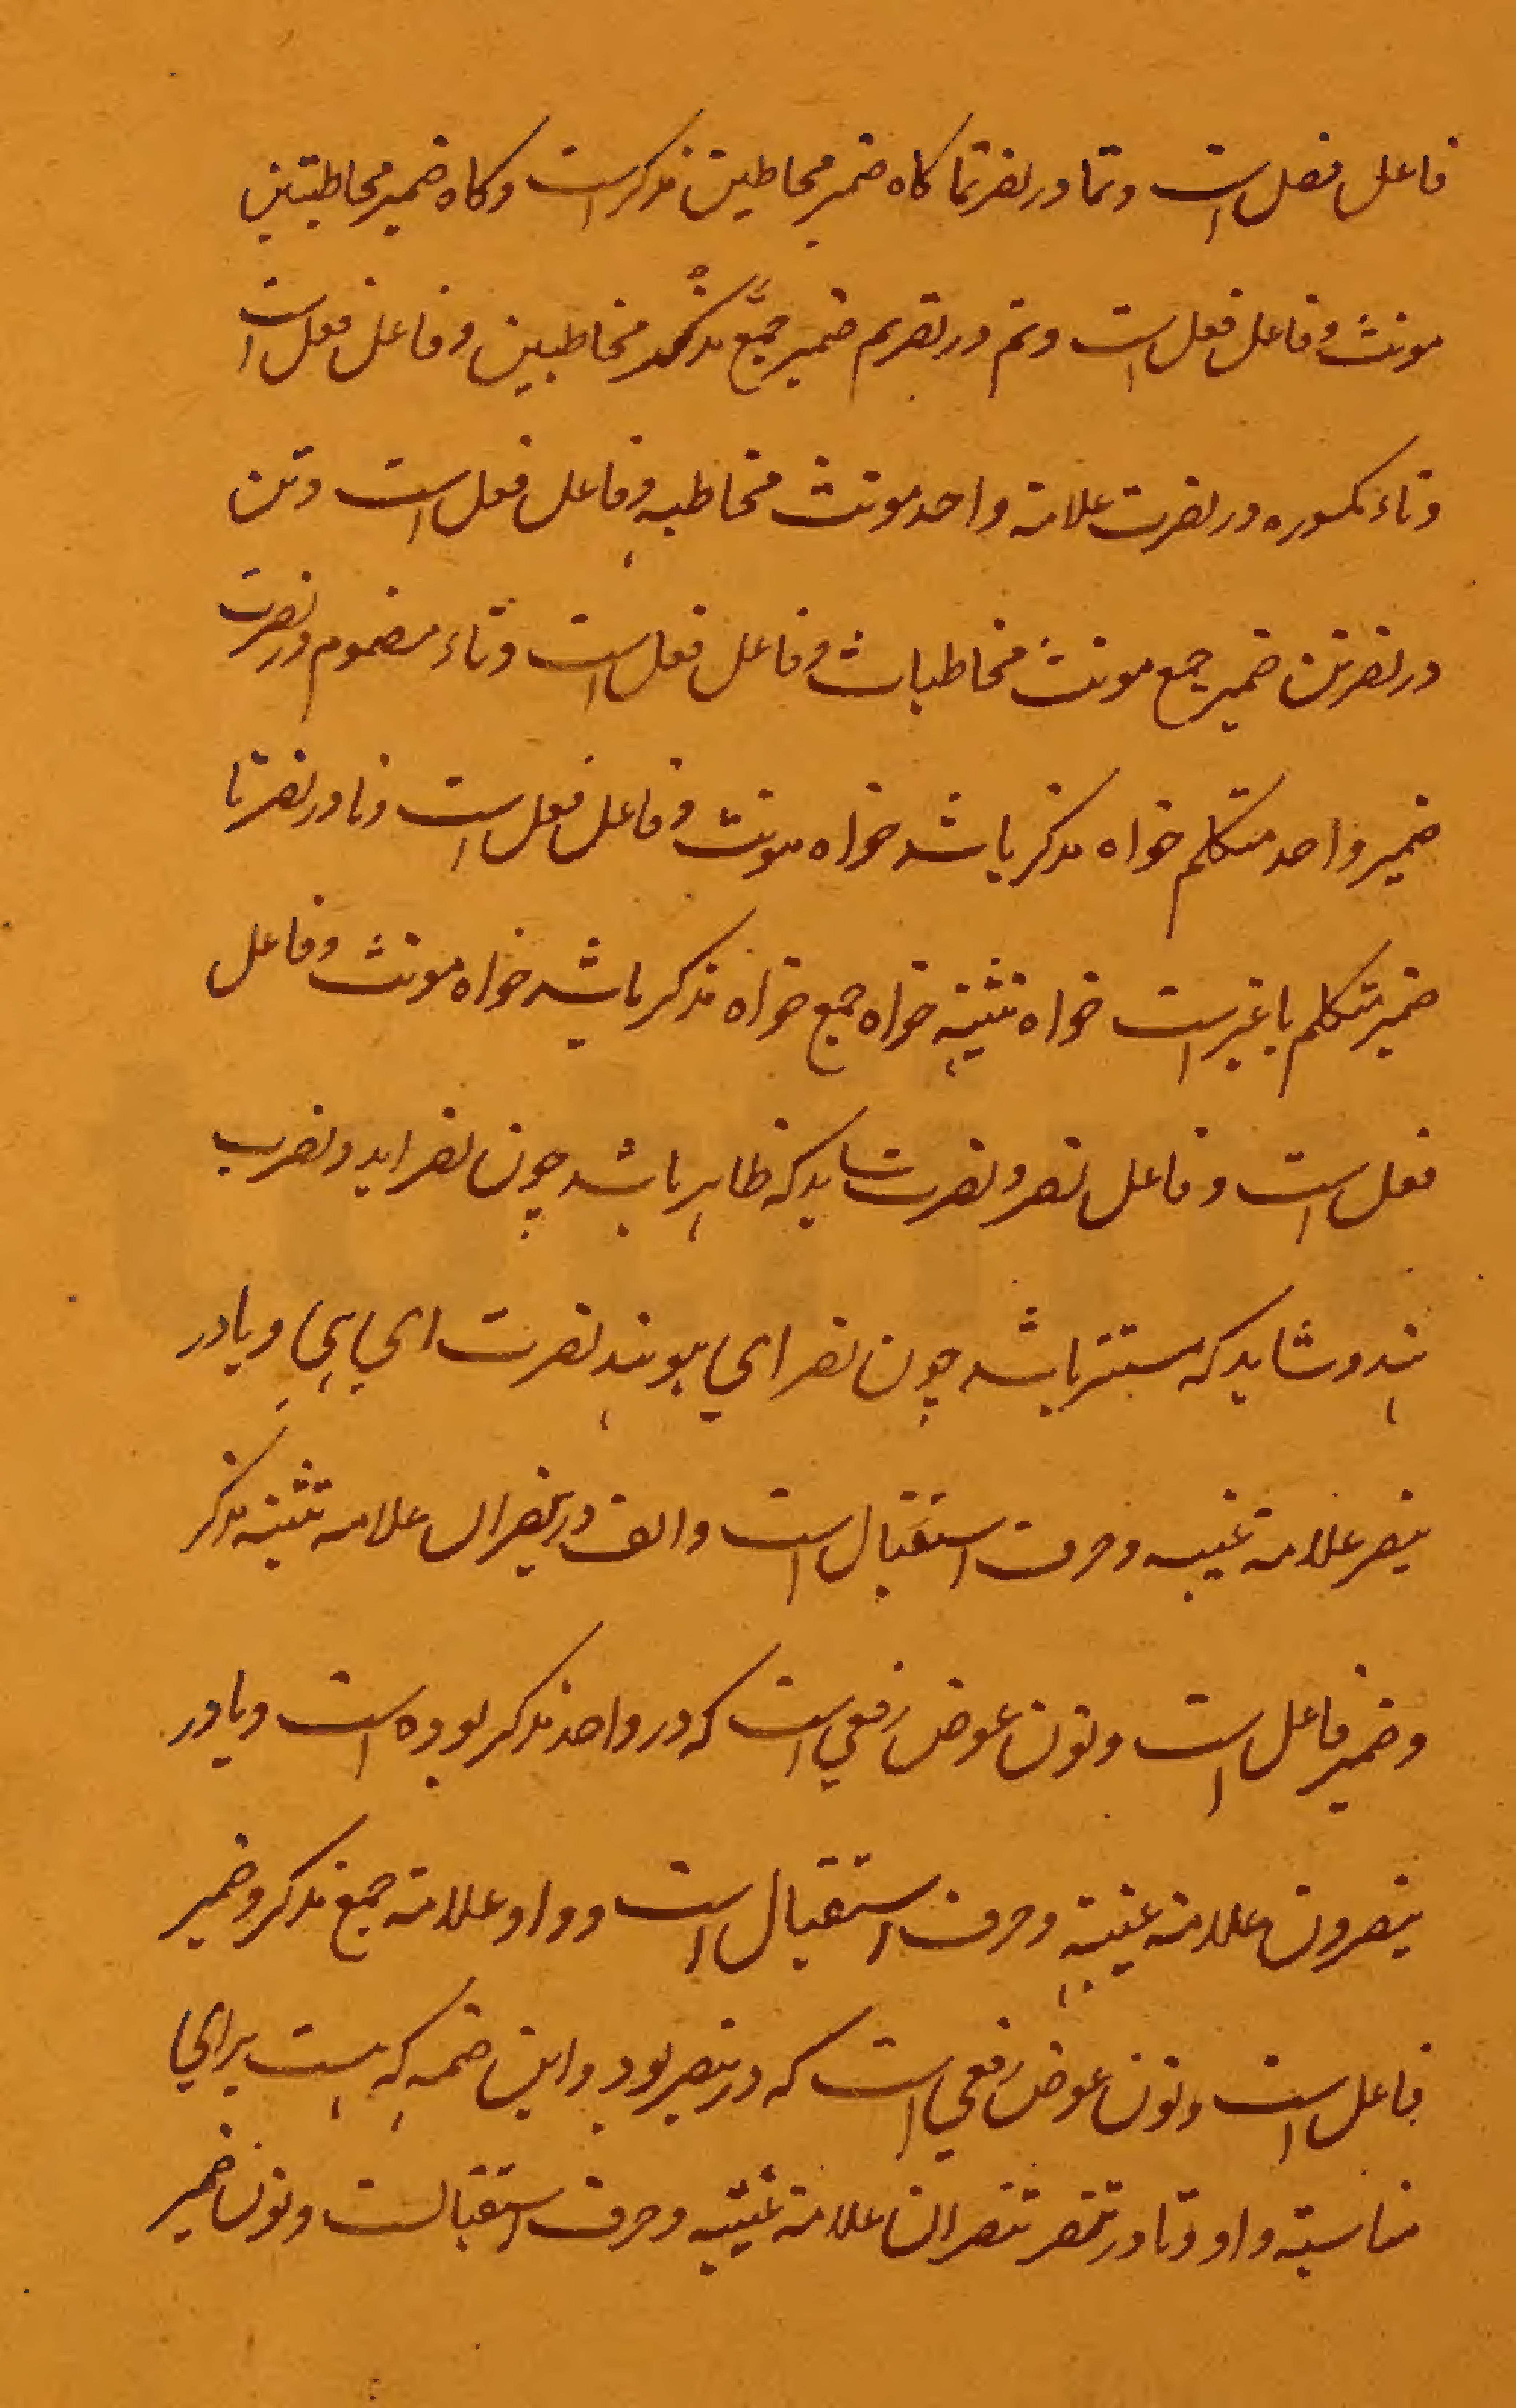 فاعل فعل است وتما در نصرتما کاه ضمیر مخاطبین مذکر است وکاه ضمیر مخاطبتین
مونث و فاعل فعل است وتم در نصرتم ضمیر جمع مذکر مخاطبین و فاعل فعل است
وتاء مکسوره در نصرت علامة واحد مونث مخاطبه و فاعل فعل است وتن
در نصرتن ضمیر جمع مونث مخاطبات و فاعل فعل است وتاء مضموم در نصرت
ضمیر واحد متکلم خواه مذکر باشد خواه مونث و فاعل فعل است ونا در نصرنا
ضمیر متکلم باغیر است خواه تثنیه خواه جمع خواه مذکر باشد خواه مونث و فاعل
فعل است و فاعل نصر و نصرت شاید که ظاهر باشد چون نصر زید و نصرت
هند و شاید که مستتر باشد چون نصر ای هو هند نصرت ای هی و یا در
ینصر علامة غیبه و حرف استقبال است والف در ینصران علامة تثنیه مذکر
وضمیر فاعل است ونون عوض رفعی است که در واحد مذکر بوده است ویا در
ینصرون علامة غیبة وحرف استقبال است و واو علامة جمع مذکر وضمیر
فاعل است ونون عوض رفعی است که در ینصر بود و این ضمه که هست برای
مناسبة واو وتا در تنصر تنصران علامة غیبیه وحرف استقبالست ونون ضمیر